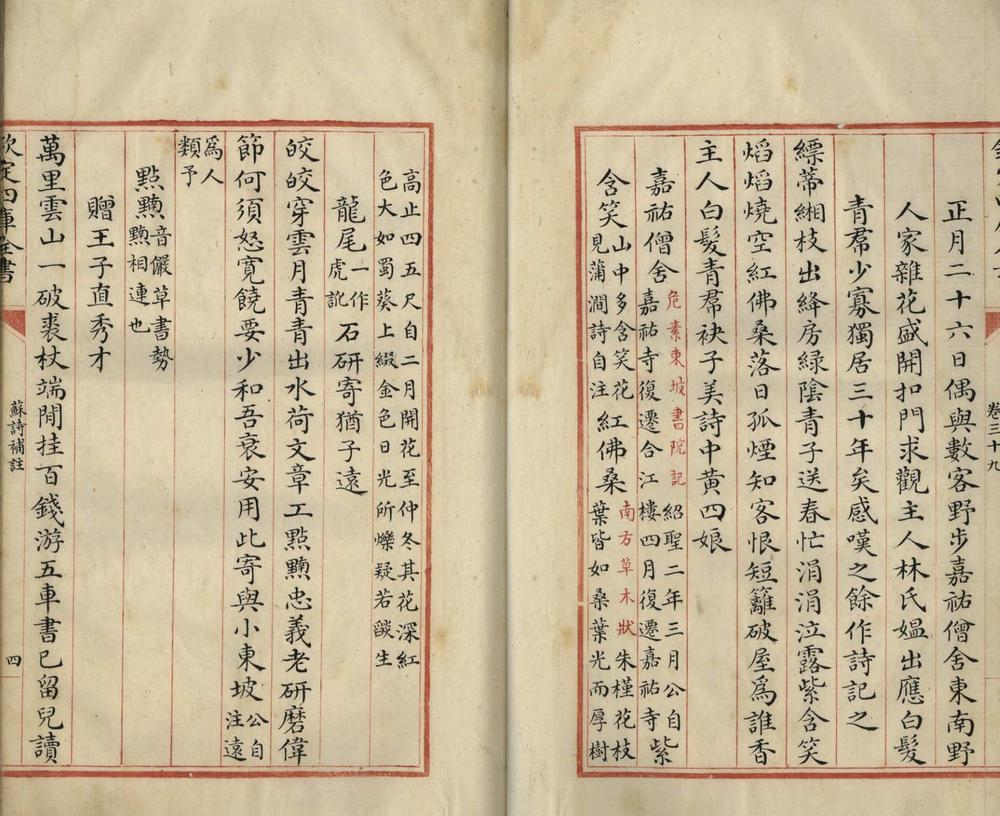 卷三十九
正月二十六日偶與數客野步嘉祐僧舍東南野
人家雜花盛開扣門求觀主人林氏媪出應白髮
青帬少寡獨居三十年矣感嘆之餘作詩記之
縹蒂緗枝出絳房綠陰青子送春忙涓涓泣露紫含笑
熖熖燒空紅佛桑落日孤煙知客恨短籬破屋為誰香
主人白髮青帬袂子美詩中黃四娘
嘉祐僧舍危素東坡書院記紹聖二年三月公自嘉祐寺復遷合江樓四月復遷嘉祐寺紫
含笑山中多含笑花見蒲澗詩自注紅佛桑南方草木狀朱槿花枝葉皆如桑葉光而厚樹
高止四五尺自二月開花至仲冬其花深紅
色大如蜀葵上綴金色日光所爍疑若燄生
龍尾一作虎訛石研寄猶子遠
皎皎穿雲月青青出水荷文章工點黮忠義老研磨偉
節何須怒寬饒要少和吾衰安用此寄與小東坡公自注遠
為人類予
點黮音儼草書勢黮相連也
贈王子直秀才
萬里雲山一破裘杖端閒挂百錢游五車書已留兒讀
欽定四庫全書 蘇詩補註 四